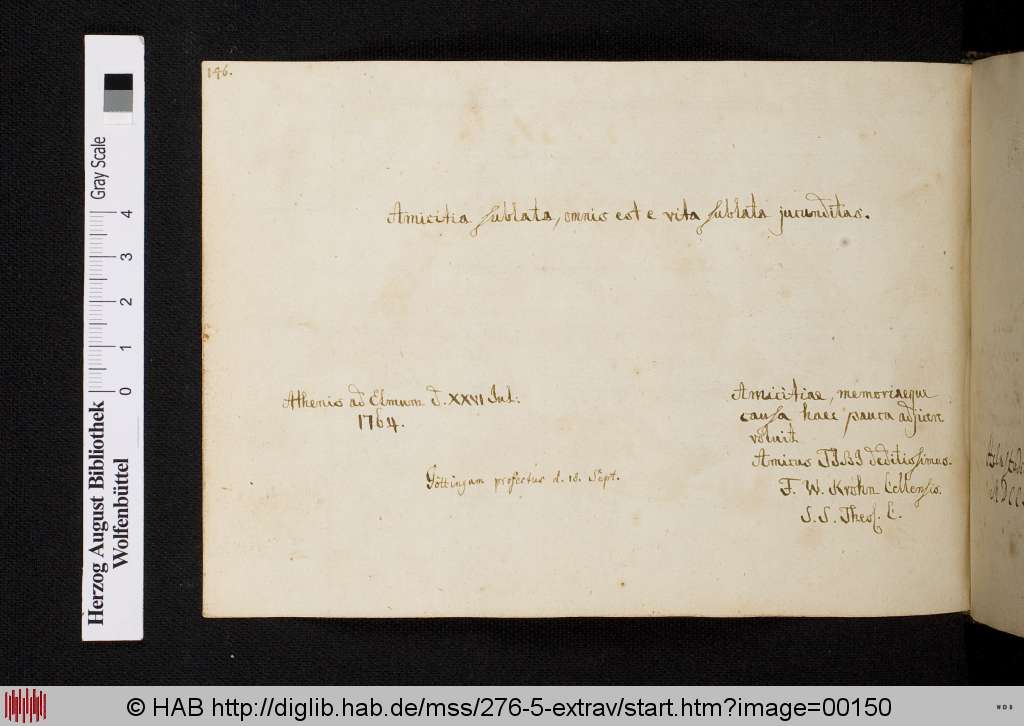 146.
Amicitia sublata, omnis est e vita sublata jucunditas.
Athenis ad Elmum d. XXVI Jul:
1764.
Amicitiae, memoriaeque
causa haec pauca adjicere
voluit
Amicus TIBI deditissimus.
F. W. Krohn Cellensis.
S. S. Theol. C.
Göttingam profectus d. 18. Sept.
Gray Scale
0 1 2 3 4
Herzog August Bibliothek
Wolfenbüttel
© HAB http://diglib.hab.de/mss/276-5-extrav/start.htm?image=00150
WDB